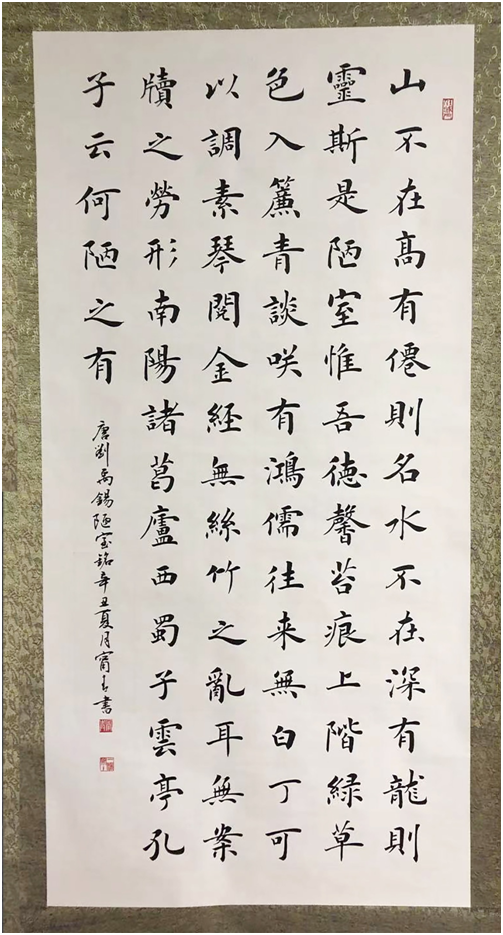 山不在高有僊則名水不在深有龍則
靈斯是陋室惟吾德馨苔痕上階緑草
色入簾青談咲有鴻儒往来無白丁可
以調素琴閱金経無絲竹之亂耳無案
牘之勞形南陽諸葛廬西蜀子雲亭孔
子云何陋之有
唐劉禹錫陋室銘辛丑夏月甯书書